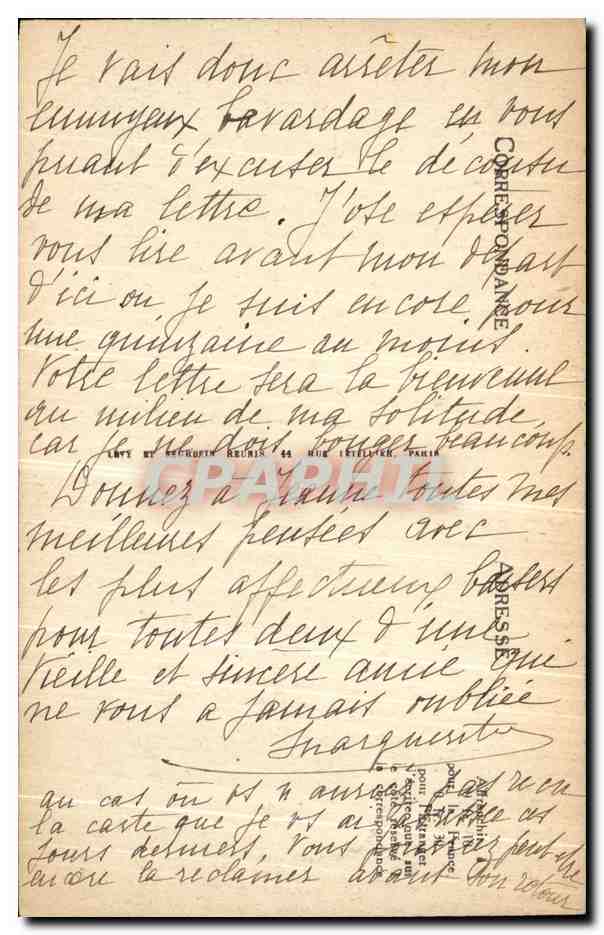 Je vais donc arrêter mon
ennuyeux bavardage en vous
priant d'excuser le décousu
de ma lettre. J'ose espérer
vous lire avant mon départ
d'ici où je suis encore pour
une quinzaine au moins.
Votre lettre sera la bienvenue
au milieu de ma solitude,
car je ne dois bouger beaucoup.
LEVY ET NEURDEIN REUNIS, 44 RUE LETELLIER, PARIS
CPARHI
Donnez à Jeanne toutes mes
meilleures pensées avec
les plus affectueux baisers
pour toutes deux d'une
vieille et sincère amie qui
ne vous a jamais oubliée
Marguerite
au cas où vs n'auriez pas reçu
la carte que je vs ai ces
jours derniers, vous peut être
encore la réclamer avant son retour
CORRESPONDANCE
ADRESSE
Affranchir
pour la France
pour l'Etranger
n'écrire que sur
le côté réservé
à la correspondance